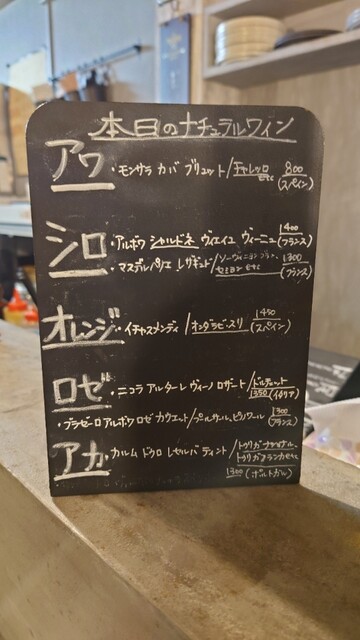 本日のナチュラルワイン
アワ
・モンサラ カバ ブリュット/チャレッロ etc 800 (スペイン)
シロ
・アルボワ シャルドネ ヴィエイユ ヴィーニュ 1400 (フランス)
・マスデルペリエ レザギュド/ソーヴィニヨンブラン、セミヨン etc 1300 (フランス)
オレンジ
・イチャスメンディ/オンダラビ・スリ 1450 (スペイン)
ロゼ
・ニコラ アルターレ ヴィーノ ロザート/ドルチェット 1350 (イタリア)
・ブラゼーロ アルボワ ロゼ カヴェット/プールサール、ピノノワール 1300 (フランス)
アカ
・カルム ドウロ レセルバ ティント/トウリガナショナル、トウリガフランカ etc
1300 (ポルトガル)